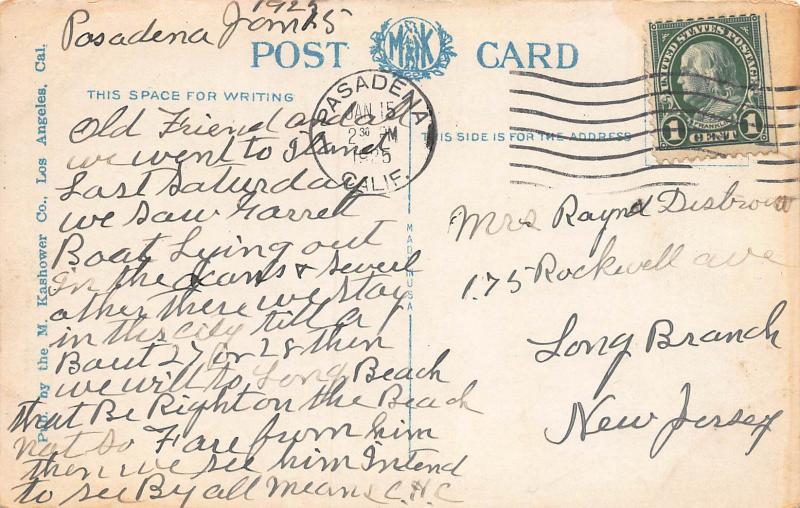 1925
Pasadena Jan 15
POST CARD
M K
THIS SPACE FOR WRITING
THIS SIDE IS FOR THE ADDRESS
Pub. by the M. Kashower Co., Los Angeles, Cal.
MADE IN USA
PASADENA
JAN 15
2 30 PM
1925
CALIF.
UNITED STATES POSTAGE
FRANKLIN
1 CENT 1
Old Friend and all
we went to Island
Last Saturday
we Saw Garrett
Boat Lying out
In the &
other there we stay
in this city till a
Bout 27 or 28 then
we will to Long Beach
that Be Right on the Beach
not so Fare from him
then we see him Intend
to see By all means C.H.C
Mrs Raynd Disbrow
175 Rockwell ave
Long Branch
New Jersey